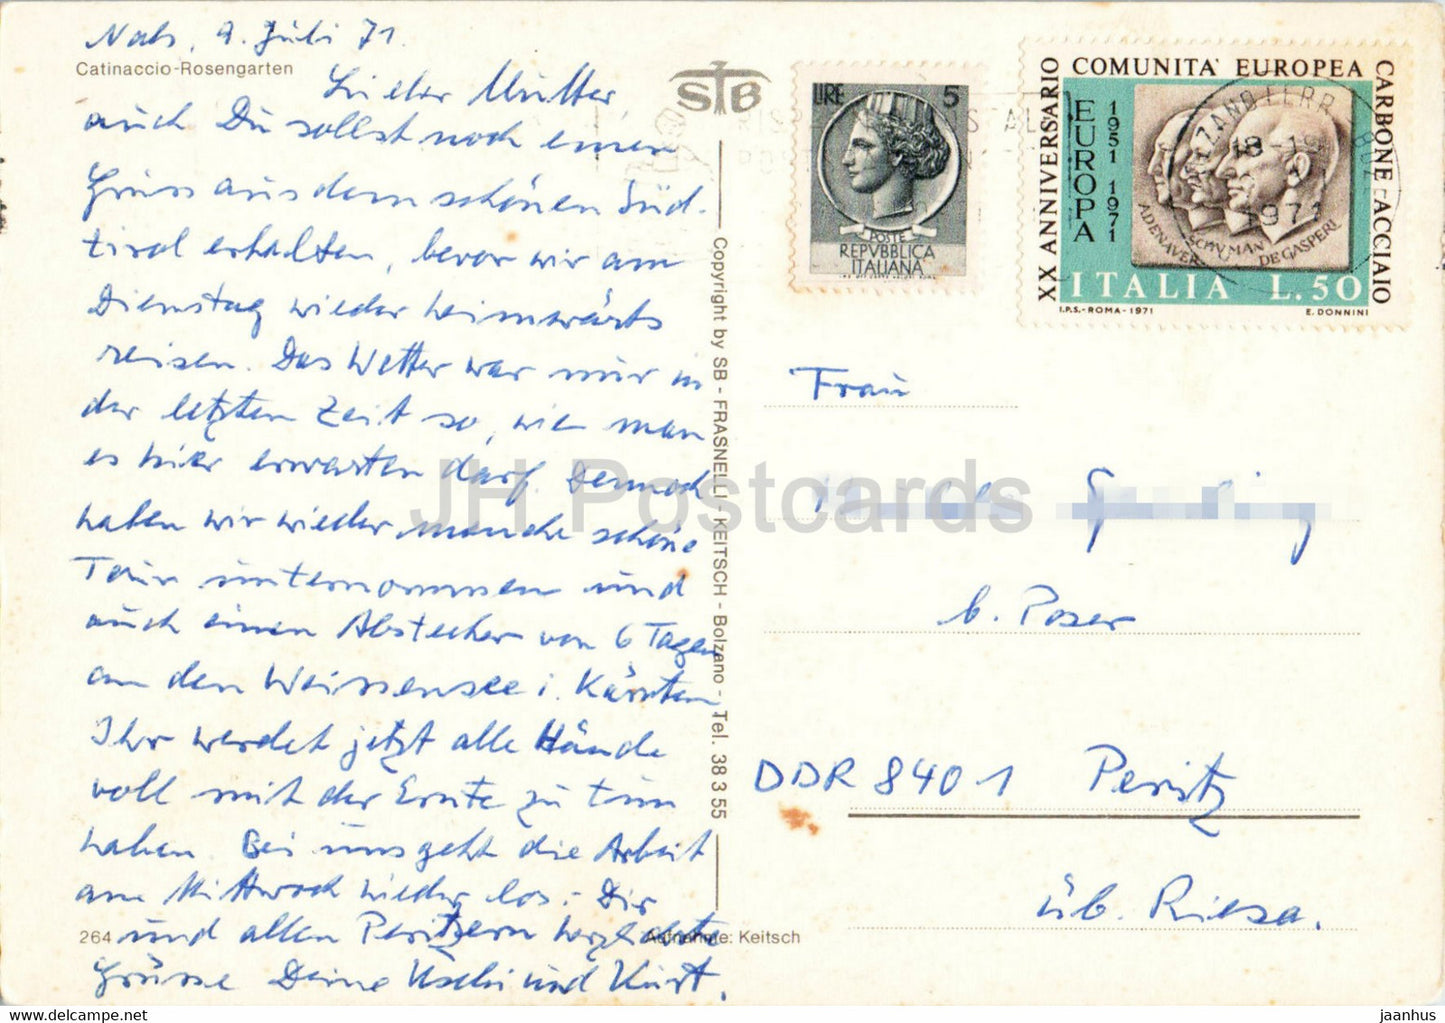 Nals, 9. Juli 71.
Catinaccio-Rosengarten
Liebe Mutter,
auch Du sollst noch einen
Gruss aus dem schönen Süd-
tirol erhalten, bevor wir am
Dienstag wieder heimwärts
reisen. Das Wetter war nur in
der letzten Zeit so, wie man
es hier erwarten darf. Dennoch
haben wir wieder manche schöne
Tour unternommen und
auch einen Abstecher von 6 Tagen
an den Weissensee i. Kärnten.
Ihr werdet jetzt alle Hände
voll mit der Ernte zu tun
haben. Bei uns geht die Arbeit
am Mittwoch wieder los. - Dir
und allen Peritzern herzlichste
Grüsse Deine Uschi und Kurt.
264
Aufnahme: Keitsch
SB
Copyright by SB - FRASNELLI - KEITSCH - Bolzano - Tel. 38 3 55
LIRE 5
POSTE
REPVBBLICA
ITALIANA
XX ANNIVERSARIO
COMUNITA' EUROPEA
CARBONE ACCIAIO
EUROPA
1951 1971
ADENAUER
SCHUMAN
DE GASPERI
ITALIA L.50
I.P.S.-ROMA-1971
E. DONNINI
18-19
1971
Frau
b. Poser
DDR 8401 Peritz
üb. Riesa.
JH Postcards
jaanhus